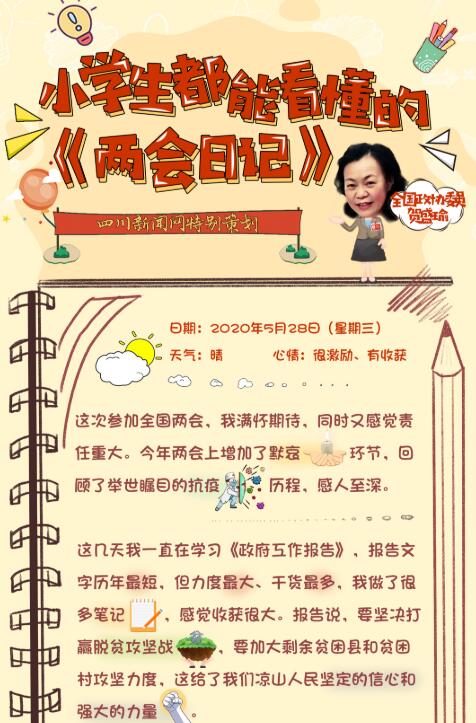 小学生都能看懂的
《两会日记》
全国政协委员
贺盛瑜
四川新闻网特别策划
日期：2020年5月28日（星期三）
天气：晴 心情：很激励、有收获
这次参加全国两会，我满怀期待，同时又感觉责
任重大。今年两会上增加了默哀 环节，回
顾了举世瞩目的抗疫 历程，感人至深。
这几天我一直在学习《政府工作报告》，报告文
字历年最短，但力度最大、干货最多，我做了很
多笔记 ，感觉收获很大。报告说，要坚决打
赢脱贫攻坚战 ，要加大剩余贫困县和贫困
村攻坚力度，这给了我们凉山人民坚定的信心和
强大的力量 。